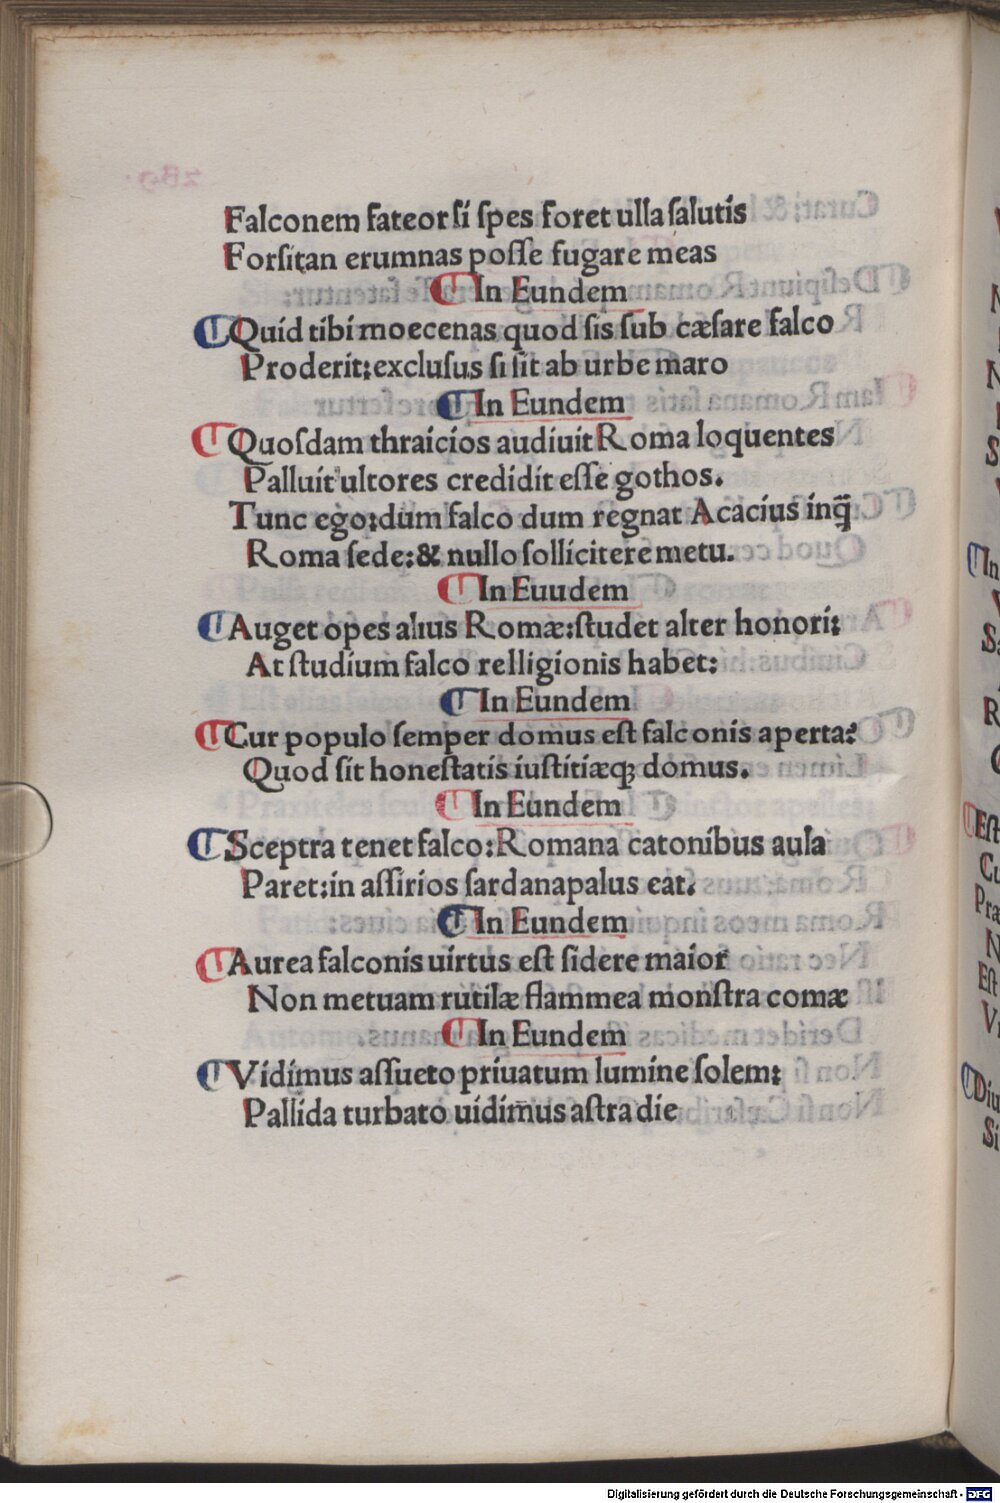 Falconem fateor si spes foret ulla salutis
Forsitan erumnas posse fugare meas
In Eundem
Quid tibi moecenas quod sis sub cæsare falco
Proderit:exclusus si sit ab urbe maro
In Eundem
Quosdam thraicios audiuit Roma loquentes
Palluit ultores credidit esse gothos.
Tunc ego:dum falco dum regnat Acacius inq̃
Roma sede:& nullo sollicitere metu.
In Euudem
Auget opes alius Romæ:studet alter honori:
At studium falco relligionis habet:
In Eundem
Cur populo semper domus est falconis aperta?
Quod sit honestatis iustitiæq; domus.
In Eundem
Sceptra tenet falco:Romana catonibus aula
Paret:in assirios sardanapalus eat.
In Eundem
Aurea falconis uirtus est sidere maior
Non metuam rutilæ flammea monstra comæ
In Eundem
Vidimus assueto priuatum lumine solem:
Pallida turbato uidimus astra die
Digitalisierung gefördert durch die Deutsche Forschungsgemeinschaft - DFG